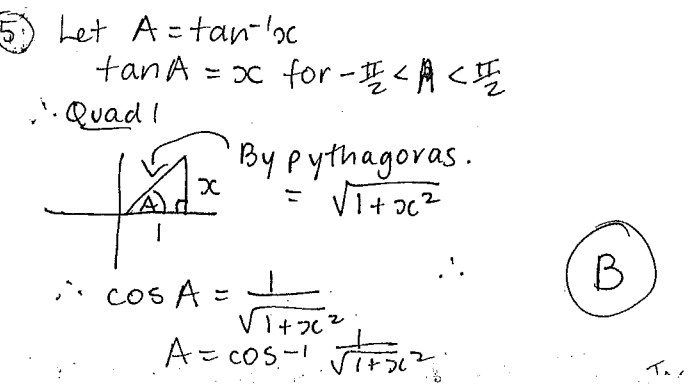 5. Let A = tan⁻¹x
tan A = x for -π/2 < A < π/2
∴ Quad 1
By pythagoras.
= √(1+x²)
A
x
1
∴ cos A = 1/√(1+x²)
∴ B
A = cos⁻¹ 1/√(1+x²)